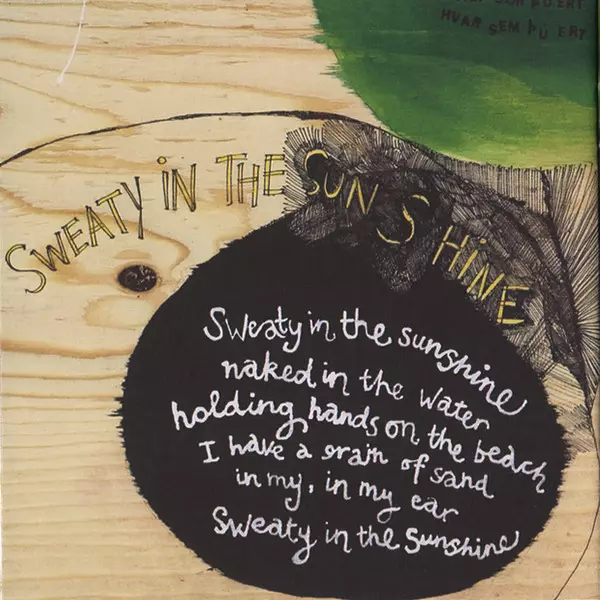 HVAR SEM ÞÚ ERT
SWEATY IN THE SUN SHINE
Sweaty in the sunshine
naked in the water
holding hands on the beach
I have a grain of sand
in my, in my ear
Sweaty in the Sunshine